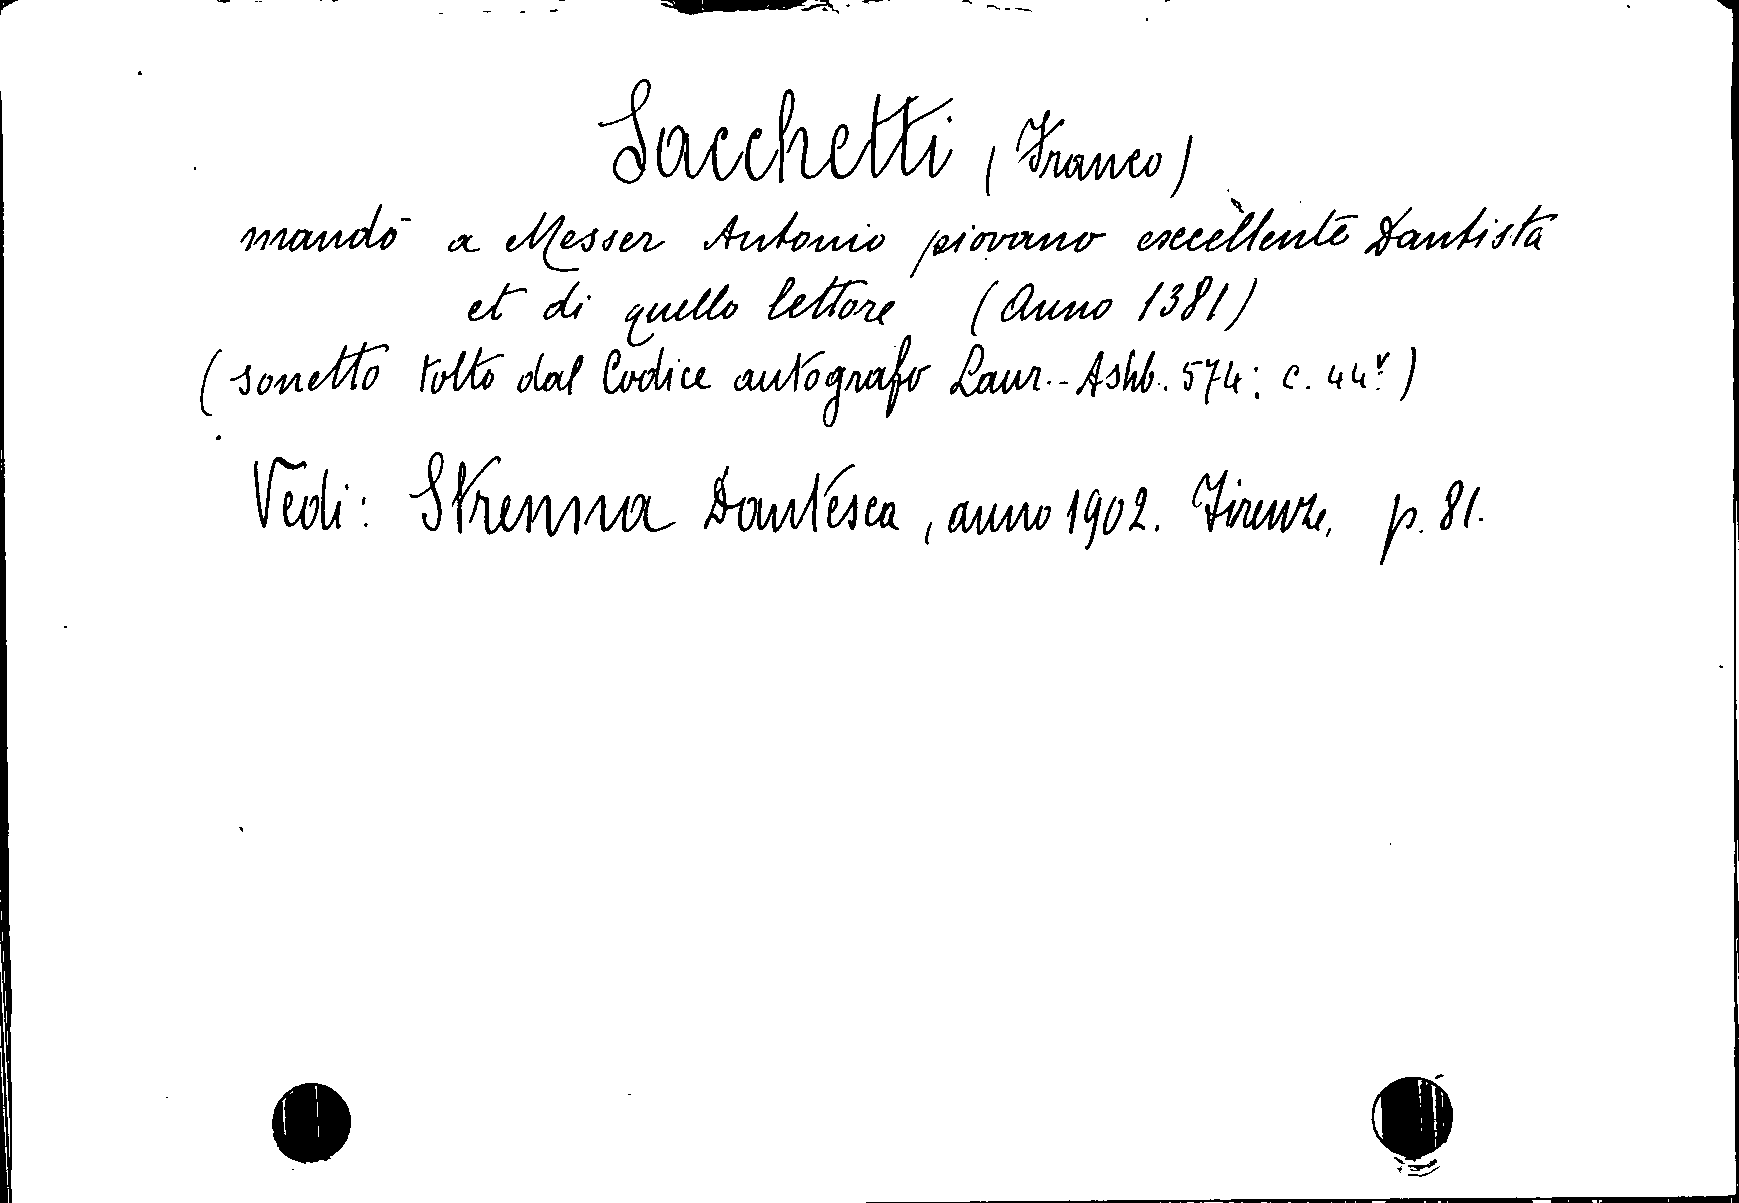 Sacchetti (Franco)
mandò a Messer Antonio piovano excellente Dantista
et di quello lettore (Anno 1381)
(sonetto tolto dal Codice autografo Laur.-Ashb. 574: c. 44v)
Vedi: Strenna Dantesca, anno 1902. Firenze, p. 81.